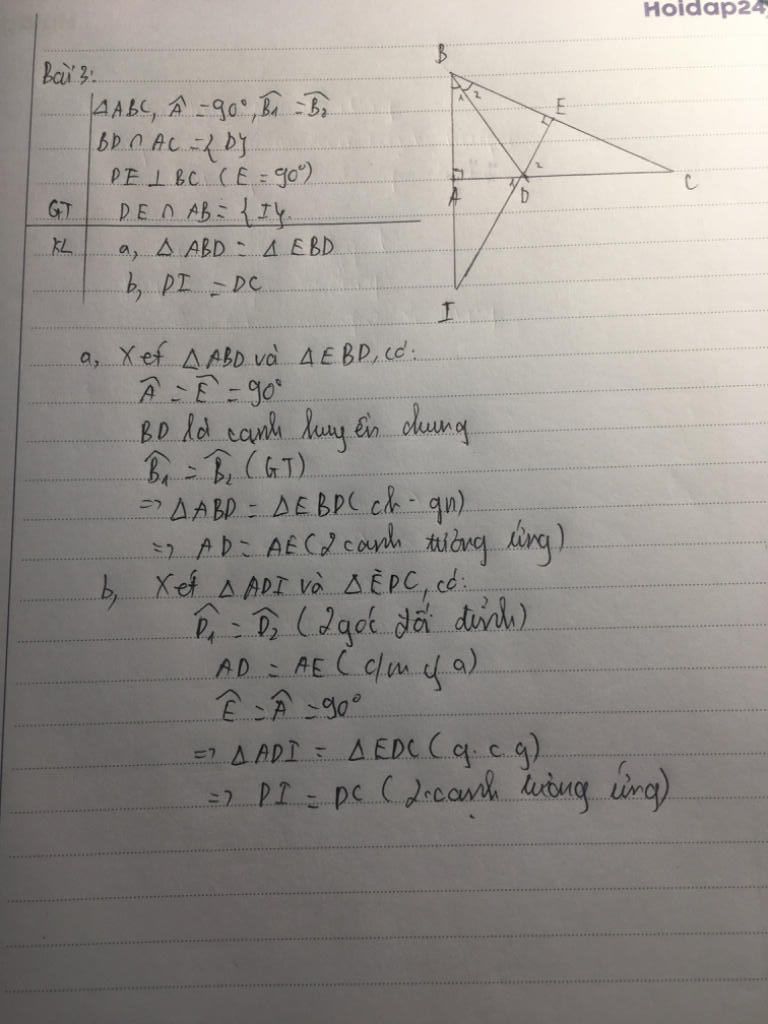 Hoidap24
Bài 3:
ΔABC, Â = 90°, B̂₁ = B̂₂
BD ∩ AC = {D}
DE ⊥ BC (E = 90°)
GT DE ∩ AB = {I}
KL a, Δ ABD = Δ EBD
b, DI = DC
B
1 2
E
A
1 D 2
C
I
a, Xét ΔABD và ΔEBD, có:
Â = Ê = 90°
BD là cạnh huyền chung
B̂₁ = B̂₂ (GT)
=> ΔABD = ΔEBD (ch - gn)
=> AD = AE (2 cạnh tương ứng)
b, Xét ΔADI và ΔEDC, có:
D̂₁ = D̂₂ (2 góc đối đỉnh)
AD = AE (c/m ý a)
Ê = Â = 90°
=> ΔADI = ΔEDC (g.c.g)
=> DI = DC (2 cạnh tương ứng)